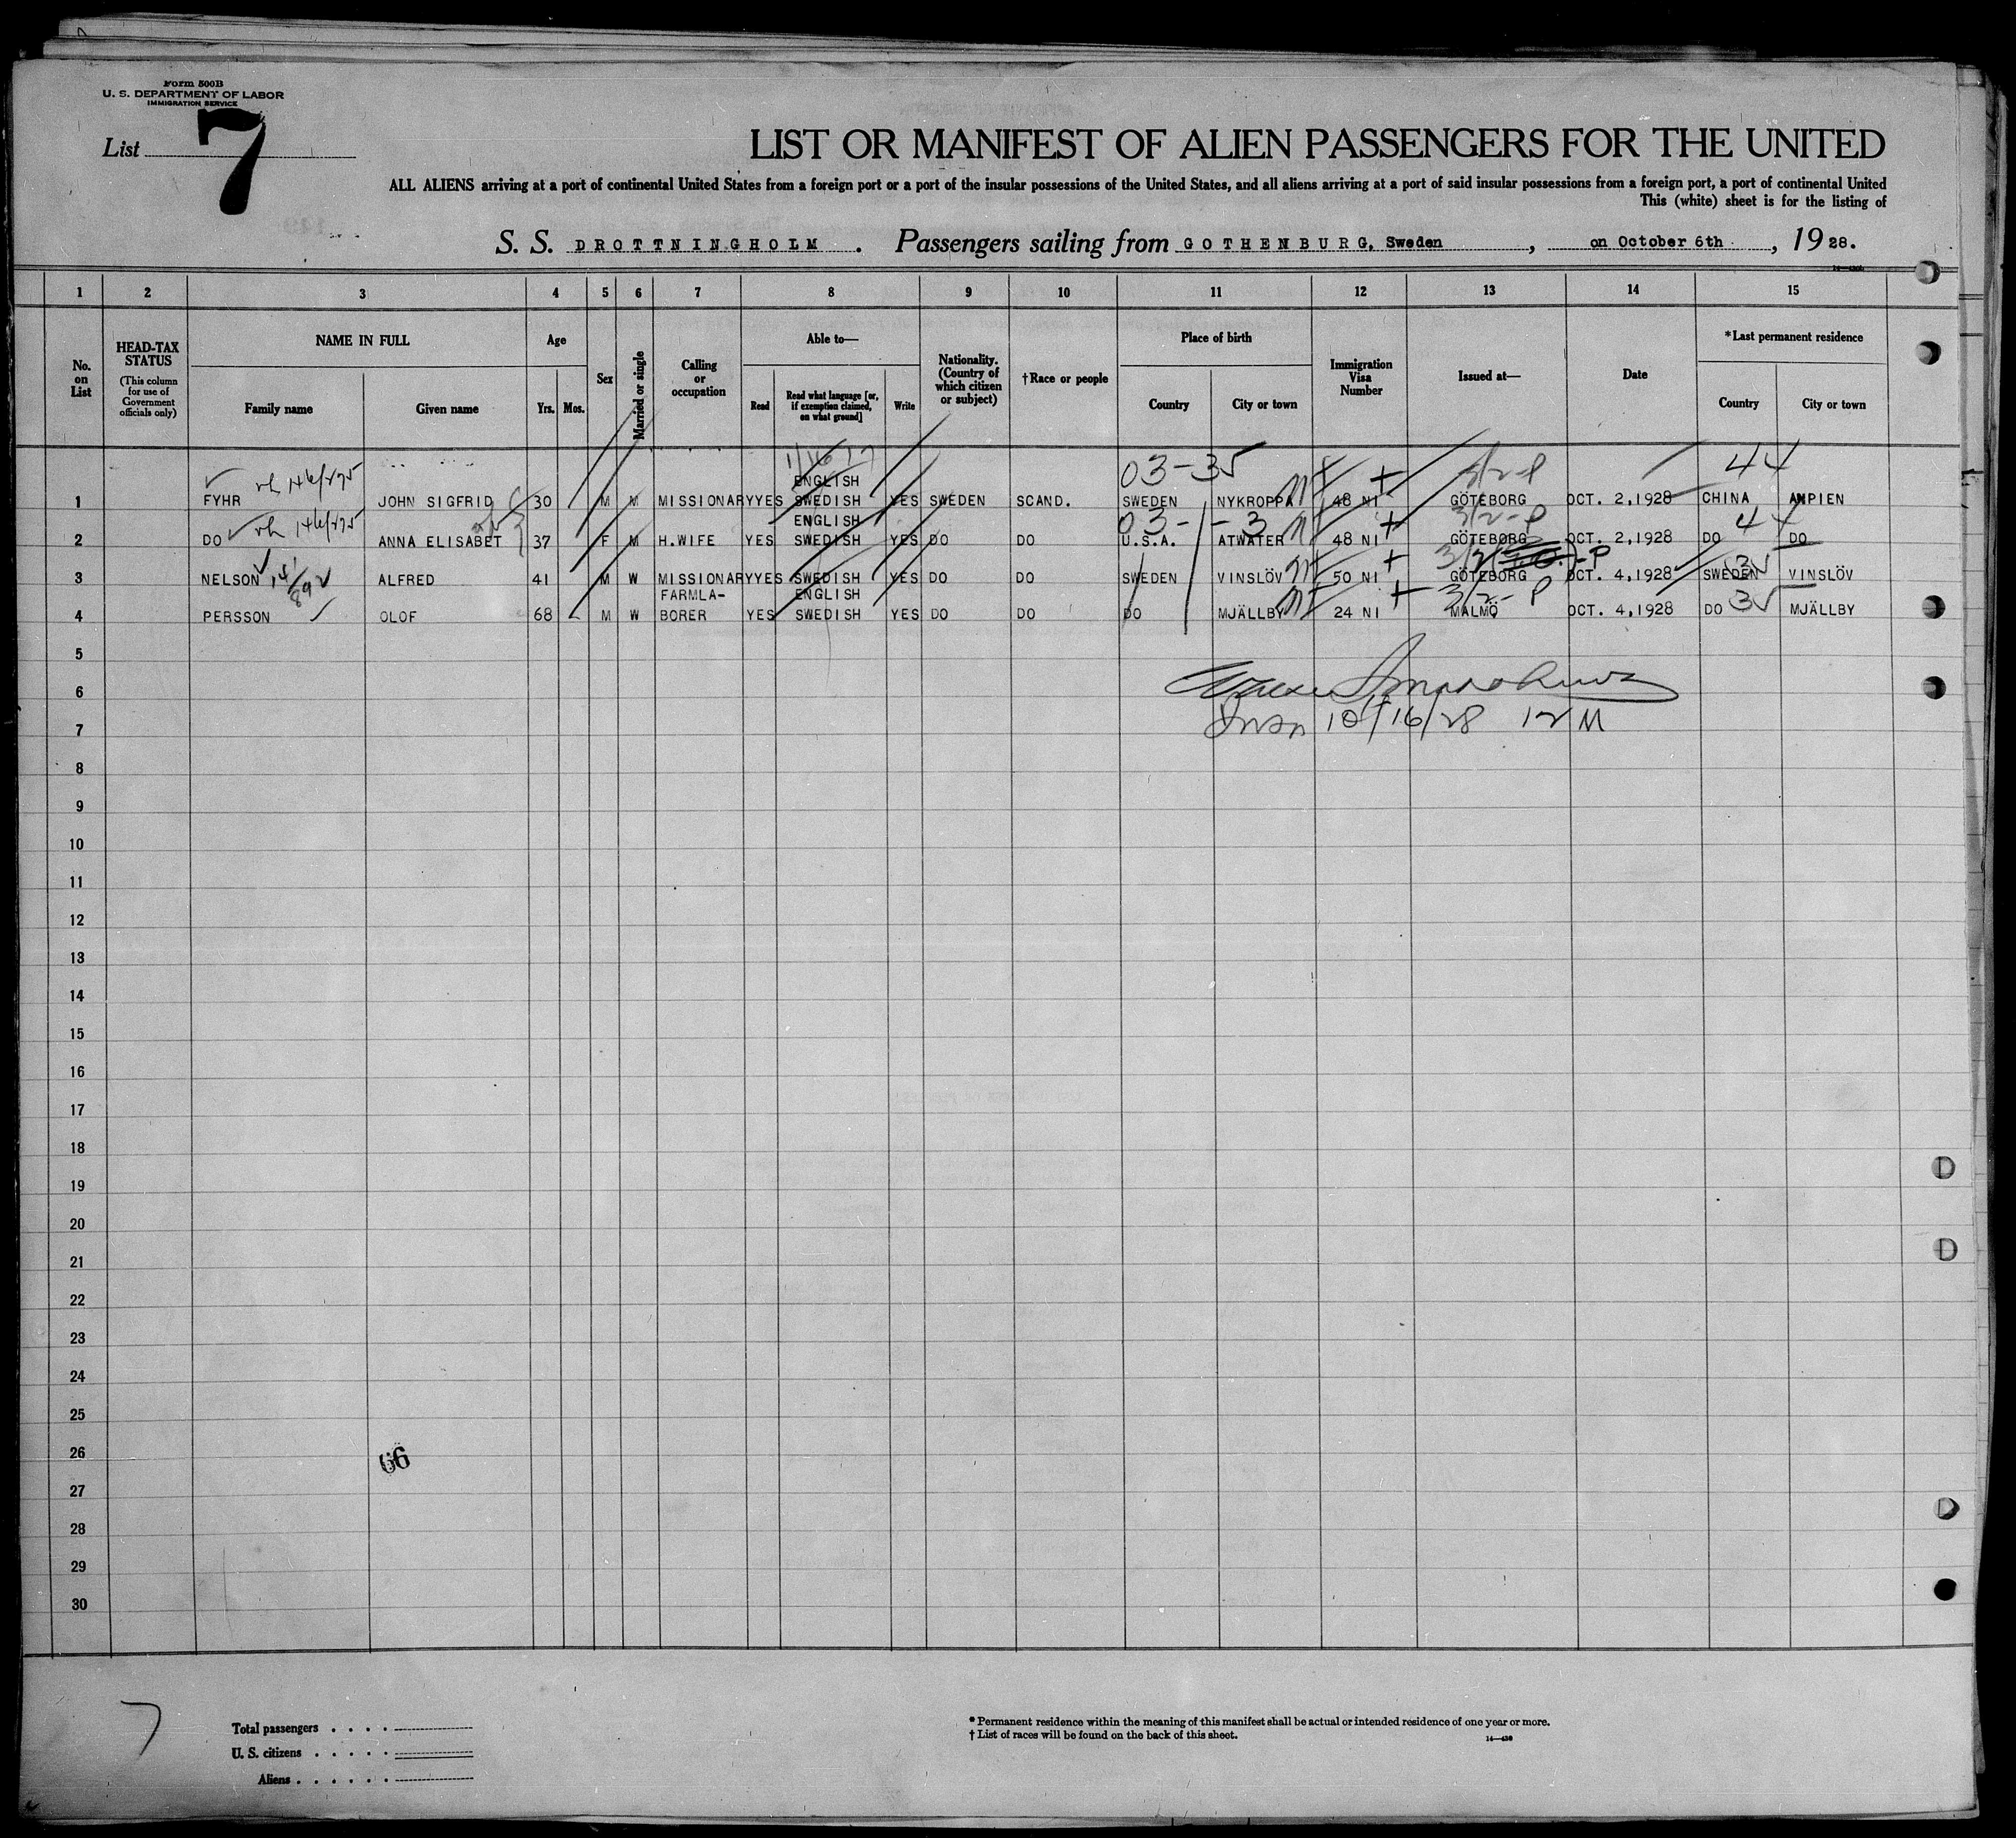 Form 500B
U. S. DEPARTMENT OF LABOR
IMMIGRATION SERVICE
List 7
LIST OR MANIFEST OF ALIEN PASSENGERS FOR THE UNITED
ALL ALIENS arriving at a port of continental United States from a foreign port or a port of the insular possessions of the United States, and all aliens arriving at a port of said insular possessions from a foreign port, a port of continental United
This (white) sheet is for the listing of
S. S. DROTTNINGHOLM. Passengers sailing from GOTHENBURG, Sweden, on October 6th, 1928.
1 2 3 4 5 6 7 8 9 10 11 12 13 14 15
No. on List
HEAD-TAX STATUS
(This column for use of Government officials only)
NAME IN FULL
Family name
Given name
Age
Yrs.
Mos.
Sex
Married or single
Calling or occupation
Able to—
Read
Read what language [or, if exemption claimed, on what ground]
Write
Nationality. (Country of which citizen or subject)
†Race or people
Place of birth
Country
City or town
Immigration Visa Number
Issued at—
Date
*Last permanent residence
Country
City or town
03-35 3/2-P 44
ENGLISH
1 FYHR JOHN SIGFRID 30 M M MISSIONARY YES SWEDISH YES SWEDEN SCAND. SWEDEN NYKROPPA 48 NI GÖTEBORG OCT. 2,1928 CHINA AMPIEN
ENGLISH 03- -3 3/2-P 44
2 DO ANNA ELISABET 37 F M H.WIFE YES SWEDISH YES DO DO U.S.A. ATWATER 48 NI GÖTEBORG OCT. 2,1928 DO DO
3 NELSON ALFRED 41 M W MISSIONARY YES SWEDISH YES DO DO SWEDEN VINSLÖV 50 NI GÖTEBORG OCT. 4,1928 SWEDEN VINSLÖV
FARMLA- ENGLISH 3/2-P 35
4 PERSSON OLOF 68 M W BORER YES SWEDISH YES DO DO DO MJÄLLBY 24 NI MALMÖ OCT. 4,1928 DO MJÄLLBY
5
6
7 10/16/28 12 M
8
9
10
11
12
13
14
15
16
17
18
19
20
21
22
23
24
25
26 66
27
28
29
30
7
Total passengers
U. S. citizens
Aliens
* Permanent residence within the meaning of this manifest shall be actual or intended residence of one year or more.
† List of races will be found on the back of this sheet.
14—430